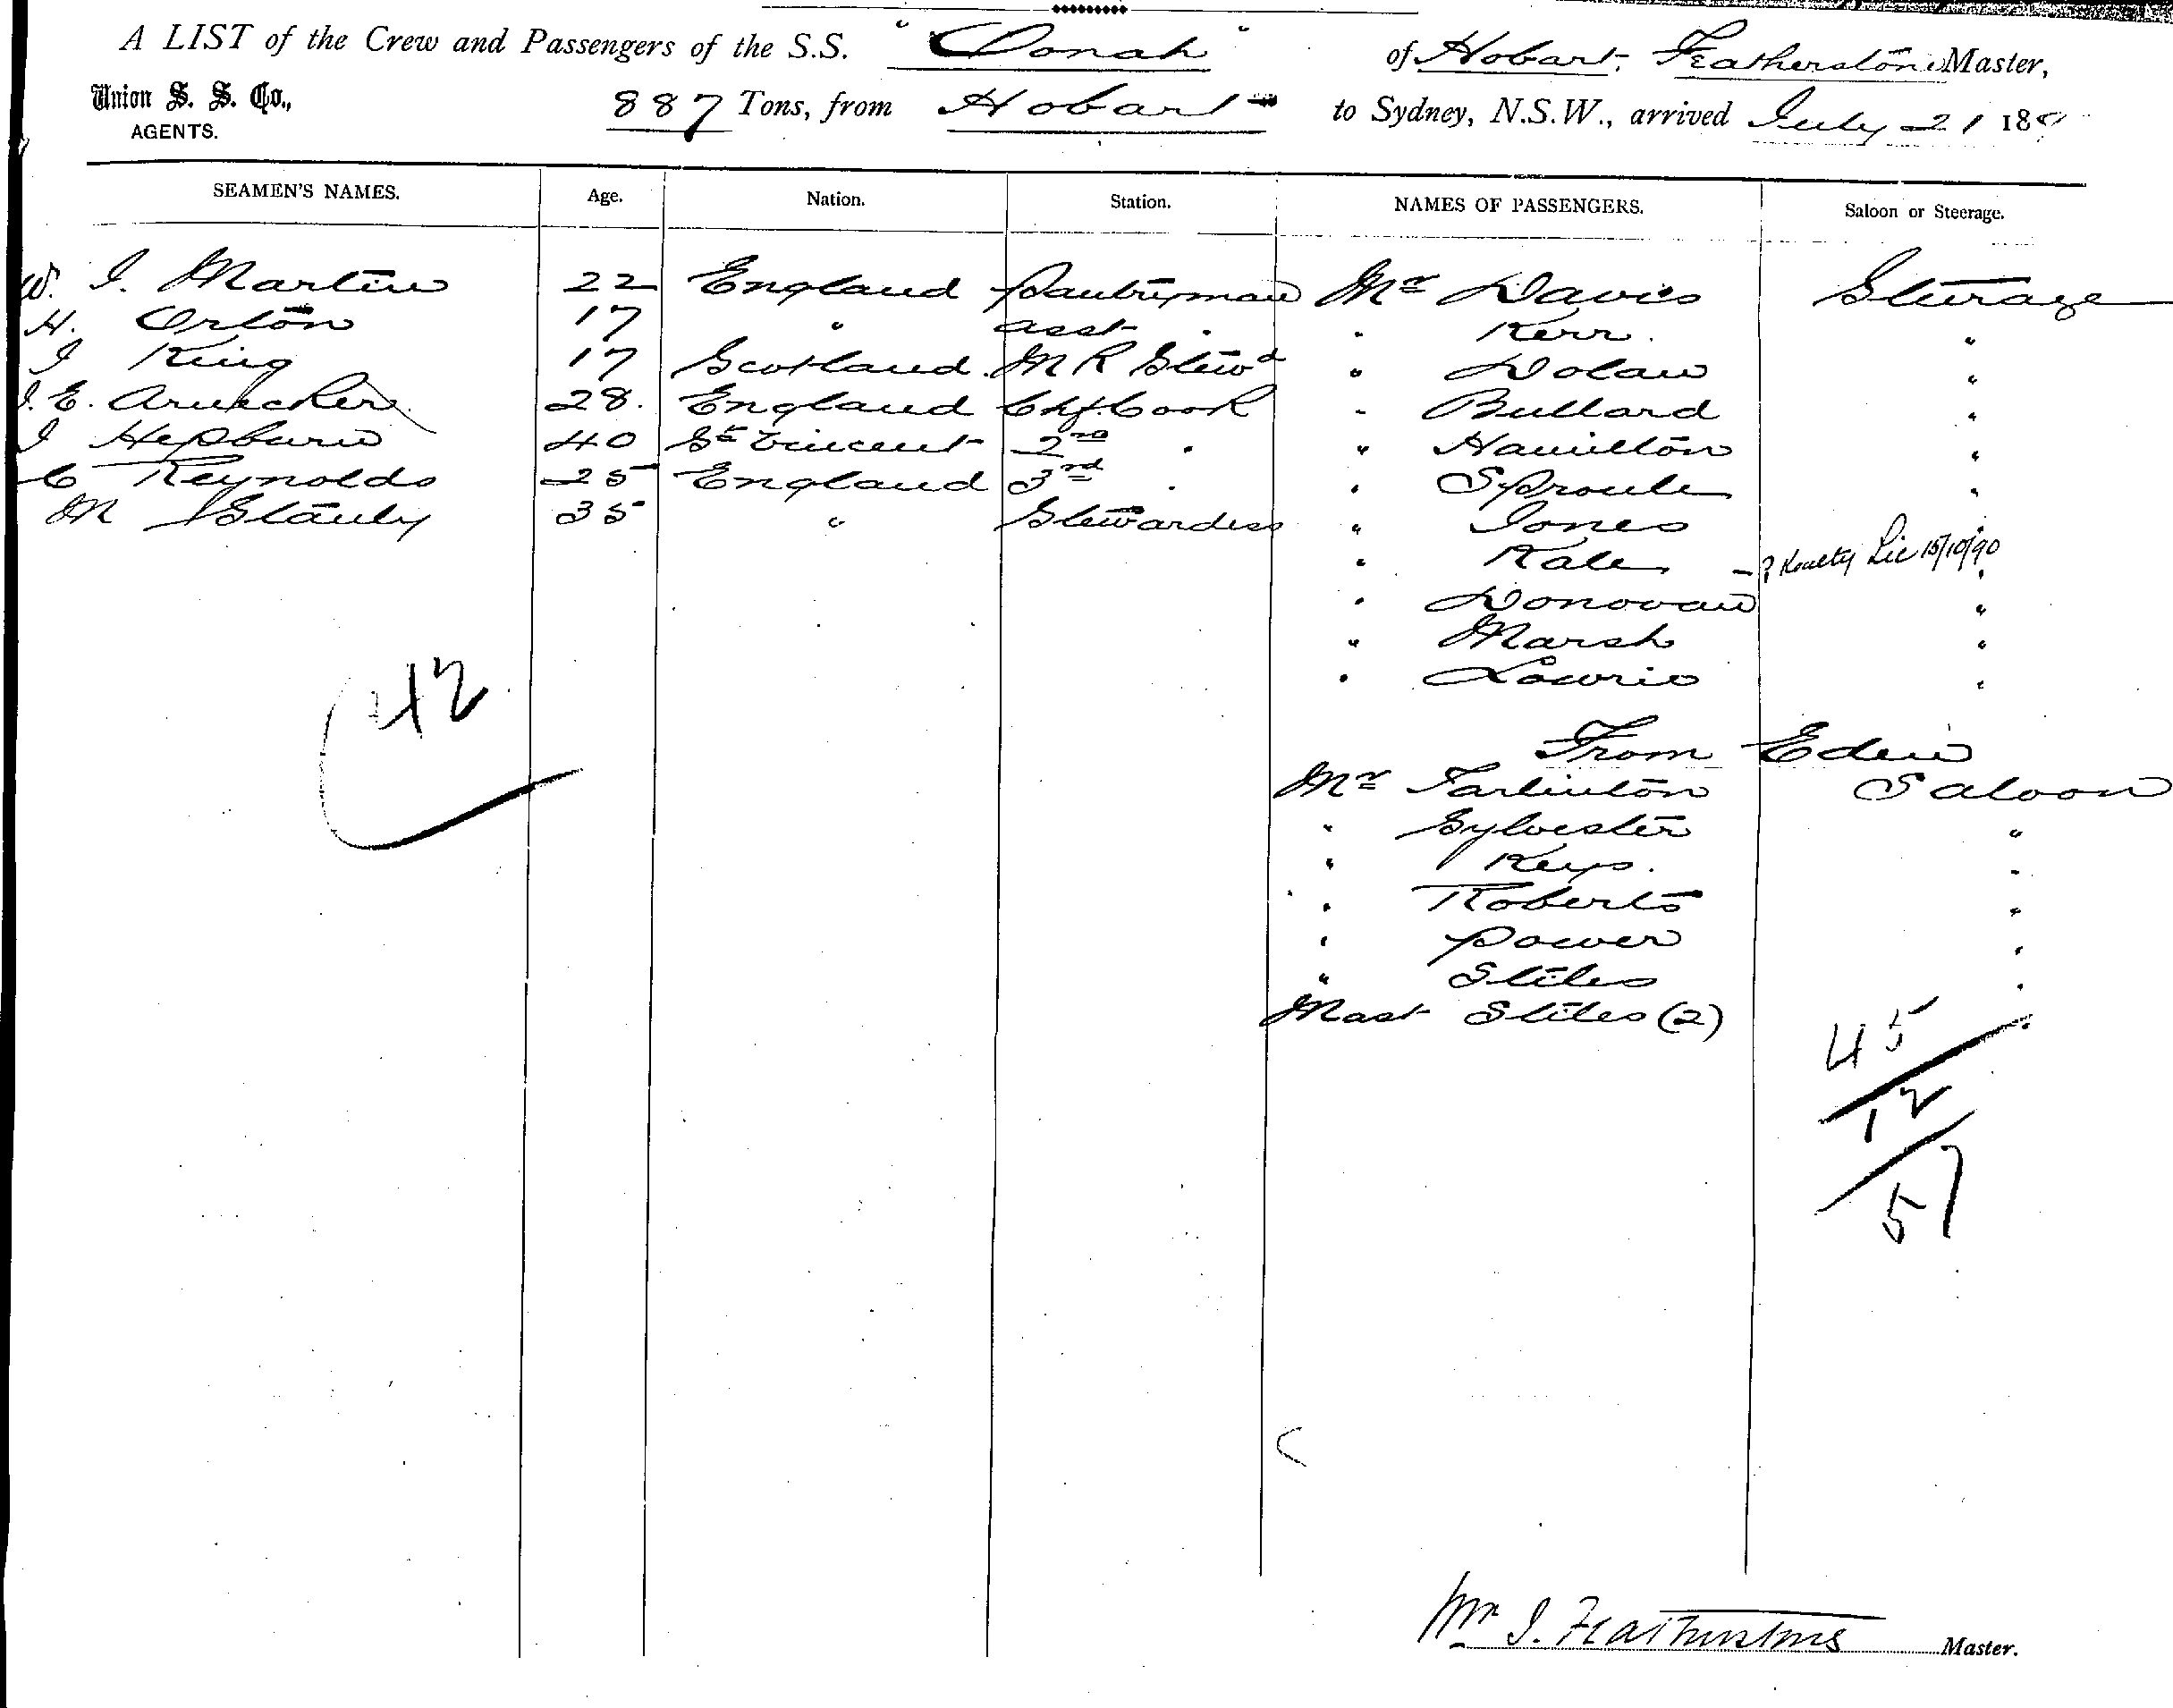 A LIST of the Crew and Passengers of the S.S. "Oonah" of Hobart, Featherstone Master,
Union S. S. Co., AGENTS. 887 Tons, from Hobart to Sydney, N.S.W., arrived July 21 189
SEAMEN'S NAMES. Age. Nation. Station. NAMES OF PASSENGERS. Saloon or Steerage.
W. J. Martin 22 England Pantryman Mr Davis Steerage
H. Orton 17 " asst " " Kerr. "
J King 17 Scotland. M R Stewd " Dolan "
J. E. 28. England Chf. Cook " Bullard "
J Hepburn 40 St Vincent 2nd " " Hamilton "
C Reynolds 25 England 3rd " " Sproule "
M Stanly 35 " Stewardess " Jones "
" Kale - ? Lic 15/10/90 "
" Donovan "
" Marsh "
" Lowrie "
42
From Eden
Mr Tarlinton Saloon
" Sylvester "
" Keys. "
" Roberts "
" Power "
" Stiles "
Mast Stiles (2) "
45
12
57
Wm J. Featherstone Master.